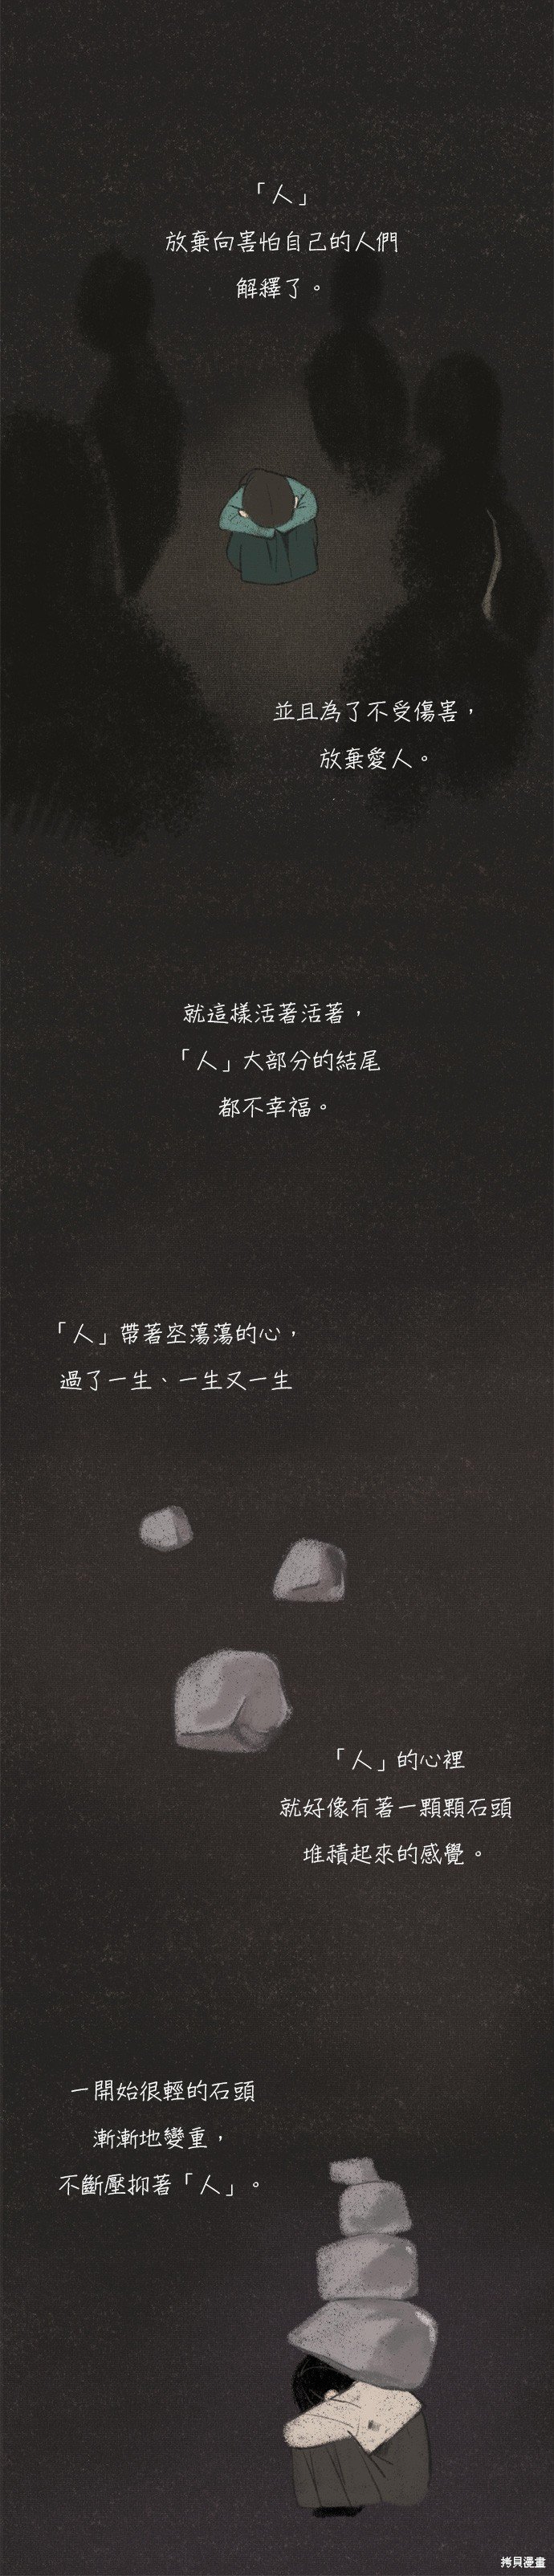 「人」
放棄向害怕自己的人們
解釋了。
並且為了不受傷害，
放棄愛人。
就這樣活著活著，
「人」大部分的結尾
都不幸福。
「人」帶著空蕩蕩的心，
過了一生、一生又一生
「人」的心裡
就好像有著一顆顆石頭
堆積起來的感覺。
一開始很輕的石頭
漸漸地變重，
不斷壓抑著「人」。
拷貝漫畫